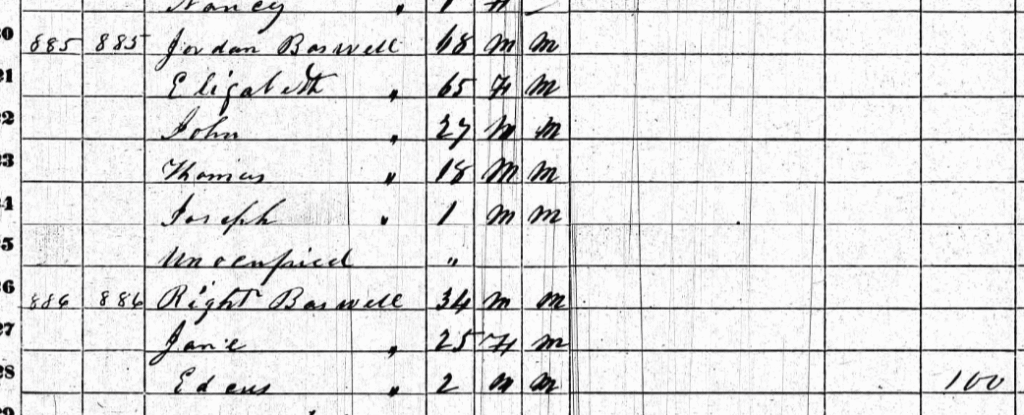 Nancy " 1 f
885 885 Jordan Boswell 68 m m
21 Elizabeth " 65 f m
22 John " 27 m m
23 Thomas " 18 m m
24 Joseph " 1 m m
25 Unocupied "
26 886 886 Right Boswell 34 m m
27 Jane " 25 f m
28 Edens " 2 m m 100